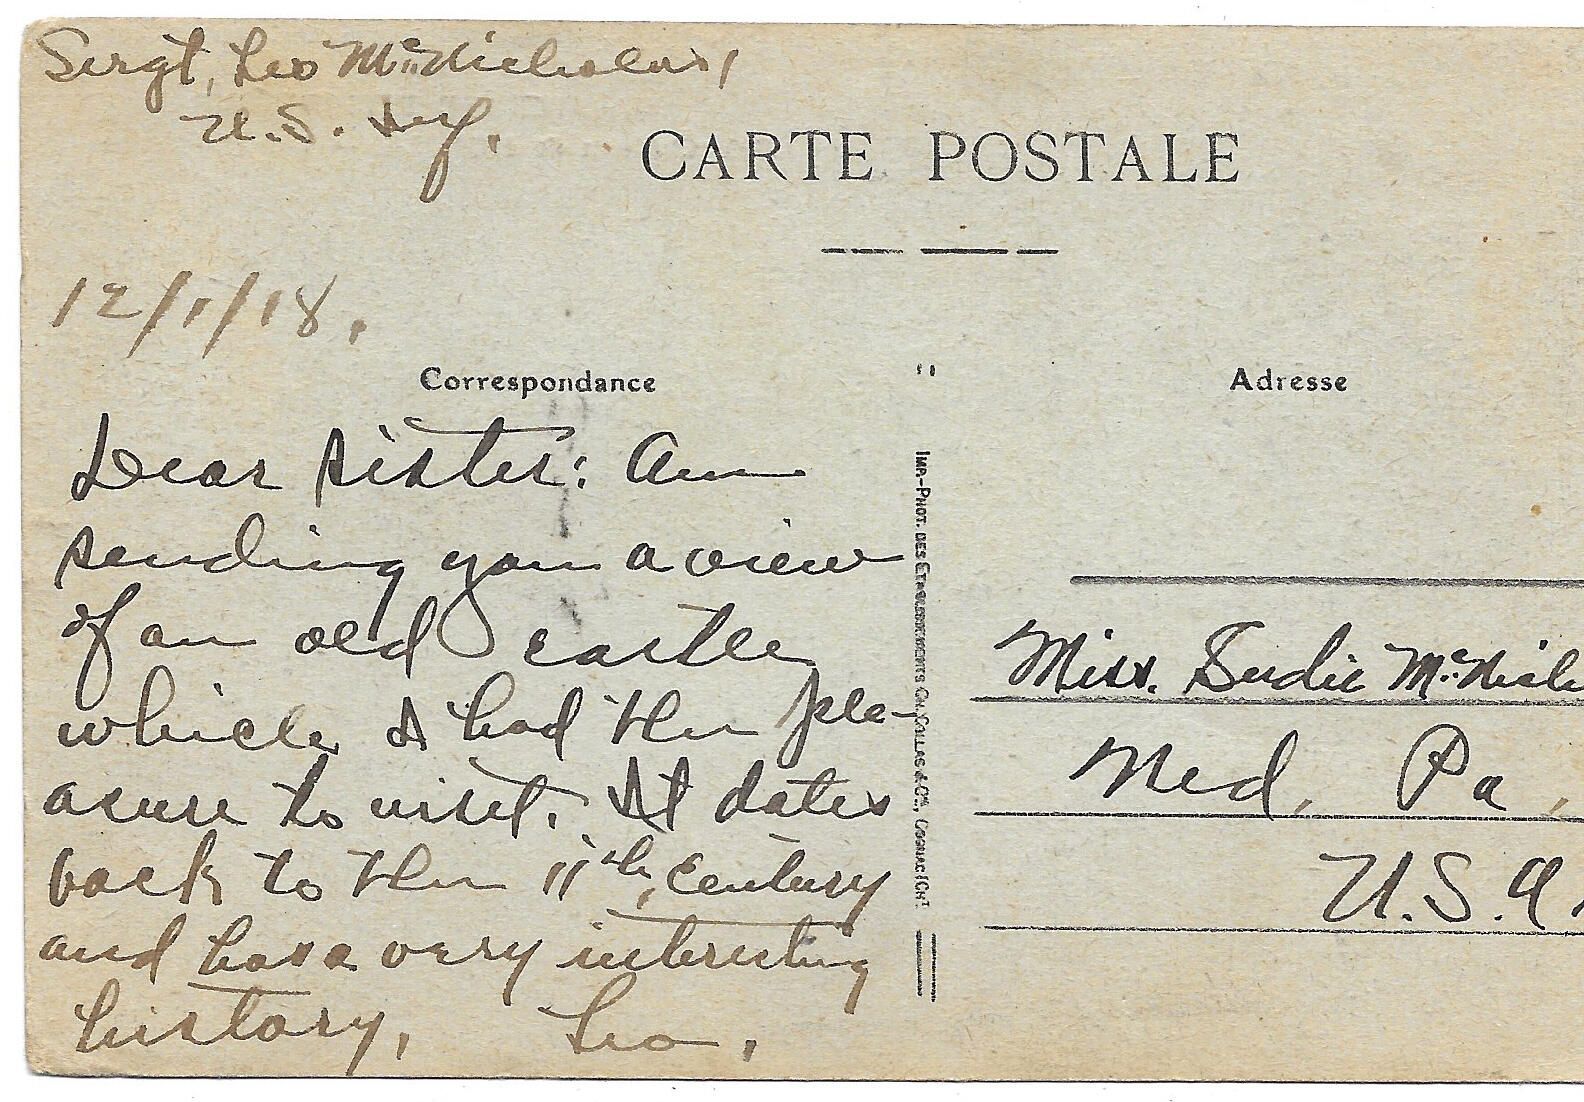 Sergt, Leo McNicholas,
U.S. Inf.
CARTE POSTALE
12/1/18.
Correspondance
Dear sister: Am
sending you a view
of an old castle,
which I had the ple-
asure to visit. It dates
back to the 11th, century
and has a very interesting
history, Leo,
IMP.-PHOT. DES ETABLISSEMENTS CH. COLLAS & Cie, COGNAC (CHte
Adresse
Miss. Sudie McNich
Med, Pa,
U.S.A